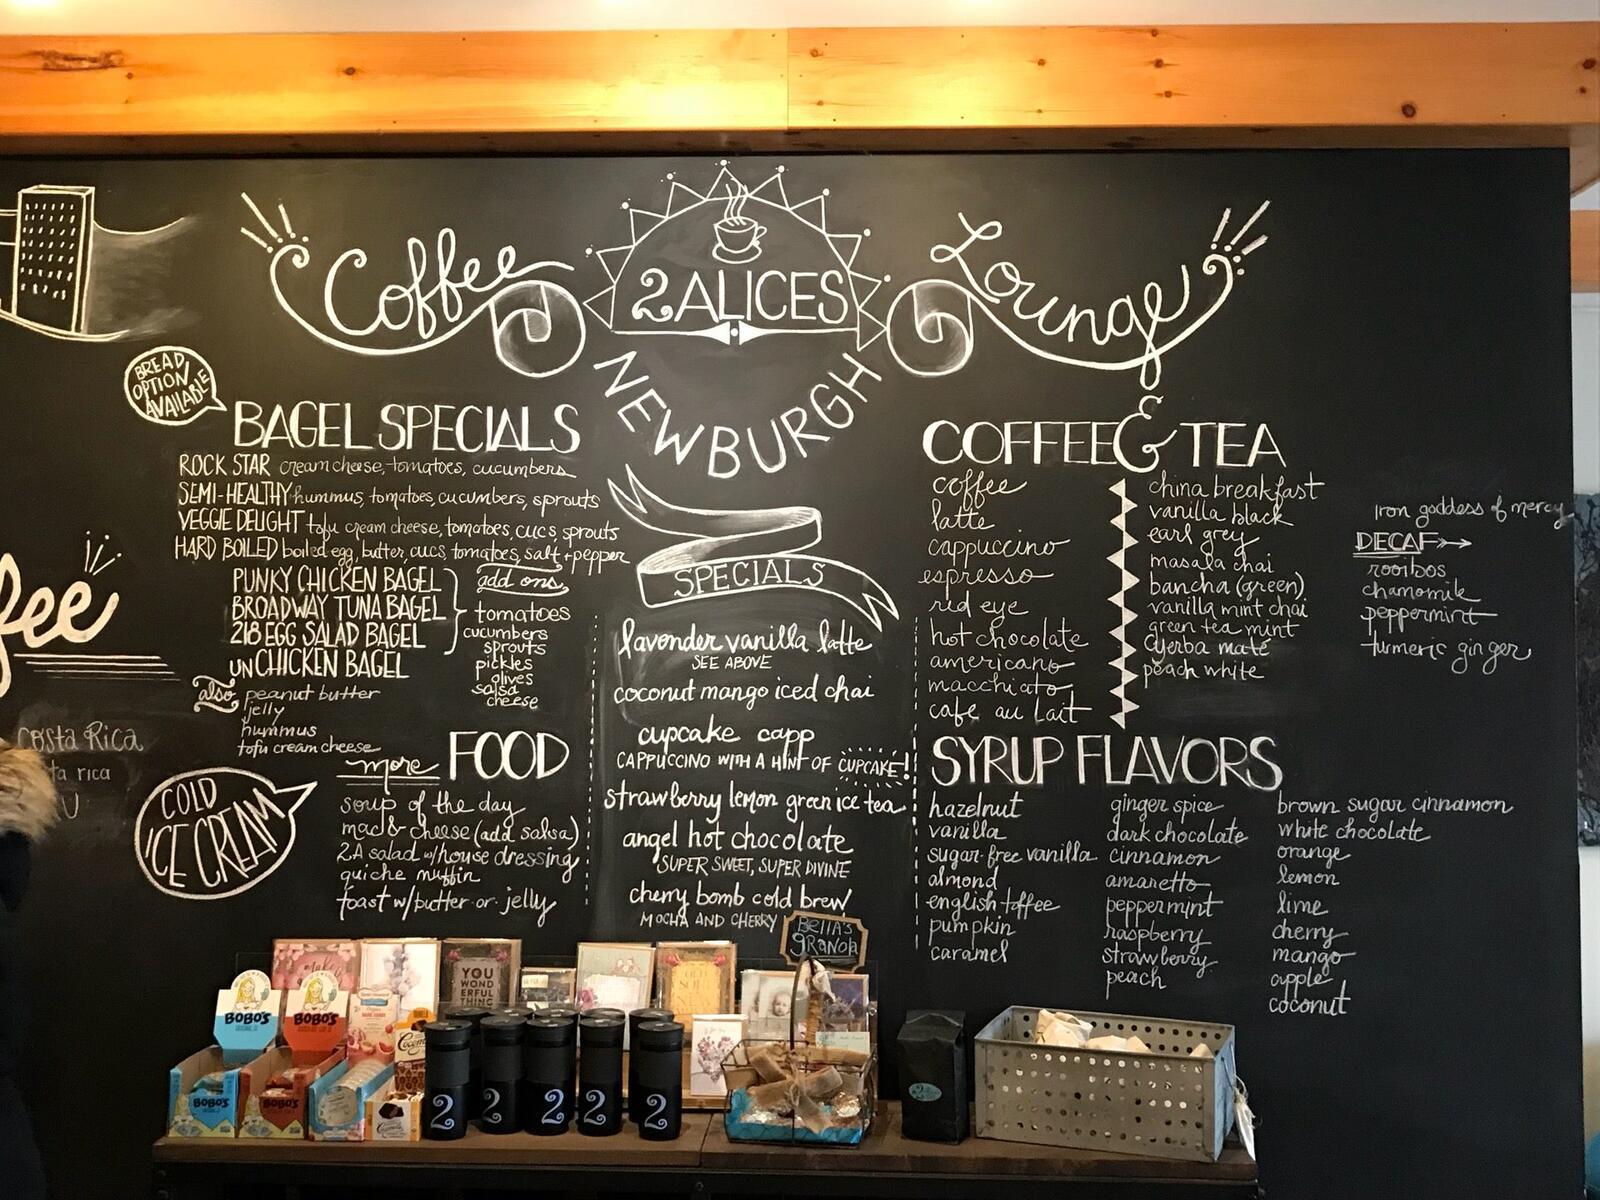 Coffee
2ALICES
Lounge
NEWBURGH
BREAD
OPTION
AVAILABLE
BAGEL SPECIALS
ROCK STAR cream cheese, tomatoes, cucumbers
SEMI-HEALTHY hummus, tomatoes, cucumbers, sprouts
VEGGIE DELIGHT tofu cream cheese, tomatoes, cucs, sprouts
HARD BOILED boiled egg, butter, cucs, tomatoes, salt + pepper
PUNKY CHICKEN BAGEL
BROADWAY TUNA BAGEL
218 EGG SALAD BAGEL
UNCHICKEN BAGEL
add ons
tomatoes
cucumbers
sprouts
pickles
olives
salsa
cheese
also
peanut butter
jelly
hummus
tofu cream cheese
more FOOD
soup of the day
mac & cheese (add salsa)
2A salad w/house dressing
quiche muffin
toast w/butter or jelly
COLD
ICE CREAM
fee
Costa Rica
ta rica
U
SPECIALS
lavender vanilla latte
SEE ABOVE
coconut mango iced chai
cupcake capp
CAPPUCCINO WITH A HINT OF CUPCAKE!
strawberry lemon green ice tea
angel hot chocolate
SUPER SWEET, SUPER DIVINE
cherry bomb cold brew
MOCHA AND CHERRY
COFFEE & TEA
coffee
latte
cappuccino
espresso
red eye
hot chocolate
americano
macchiato
cafe au lait
china breakfast
vanilla black
earl grey
masala chai
bancha (green)
vanilla mint chai
green tea mint
yerba maté
peach white
Iron goddess of mercy
DECAF
rooibos
chamomile
peppermint
turmeric ginger
SYRUP FLAVORS
hazelnut
vanilla
sugar-free vanilla
almond
english toffee
pumpkin
caramel
ginger spice
dark chocolate
cinnamon
amaretto
peppermint
raspberry
strawberry
peach
brown sugar cinnamon
white chocolate
orange
lemon
lime
cherry
mango
apple
coconut
BELLA'S
GRANOLA
YOU
WOND
ERFUL
THING
BOBO'S
BOBO'S
BOBO'S
BOBO'S
2
2
2
2
2